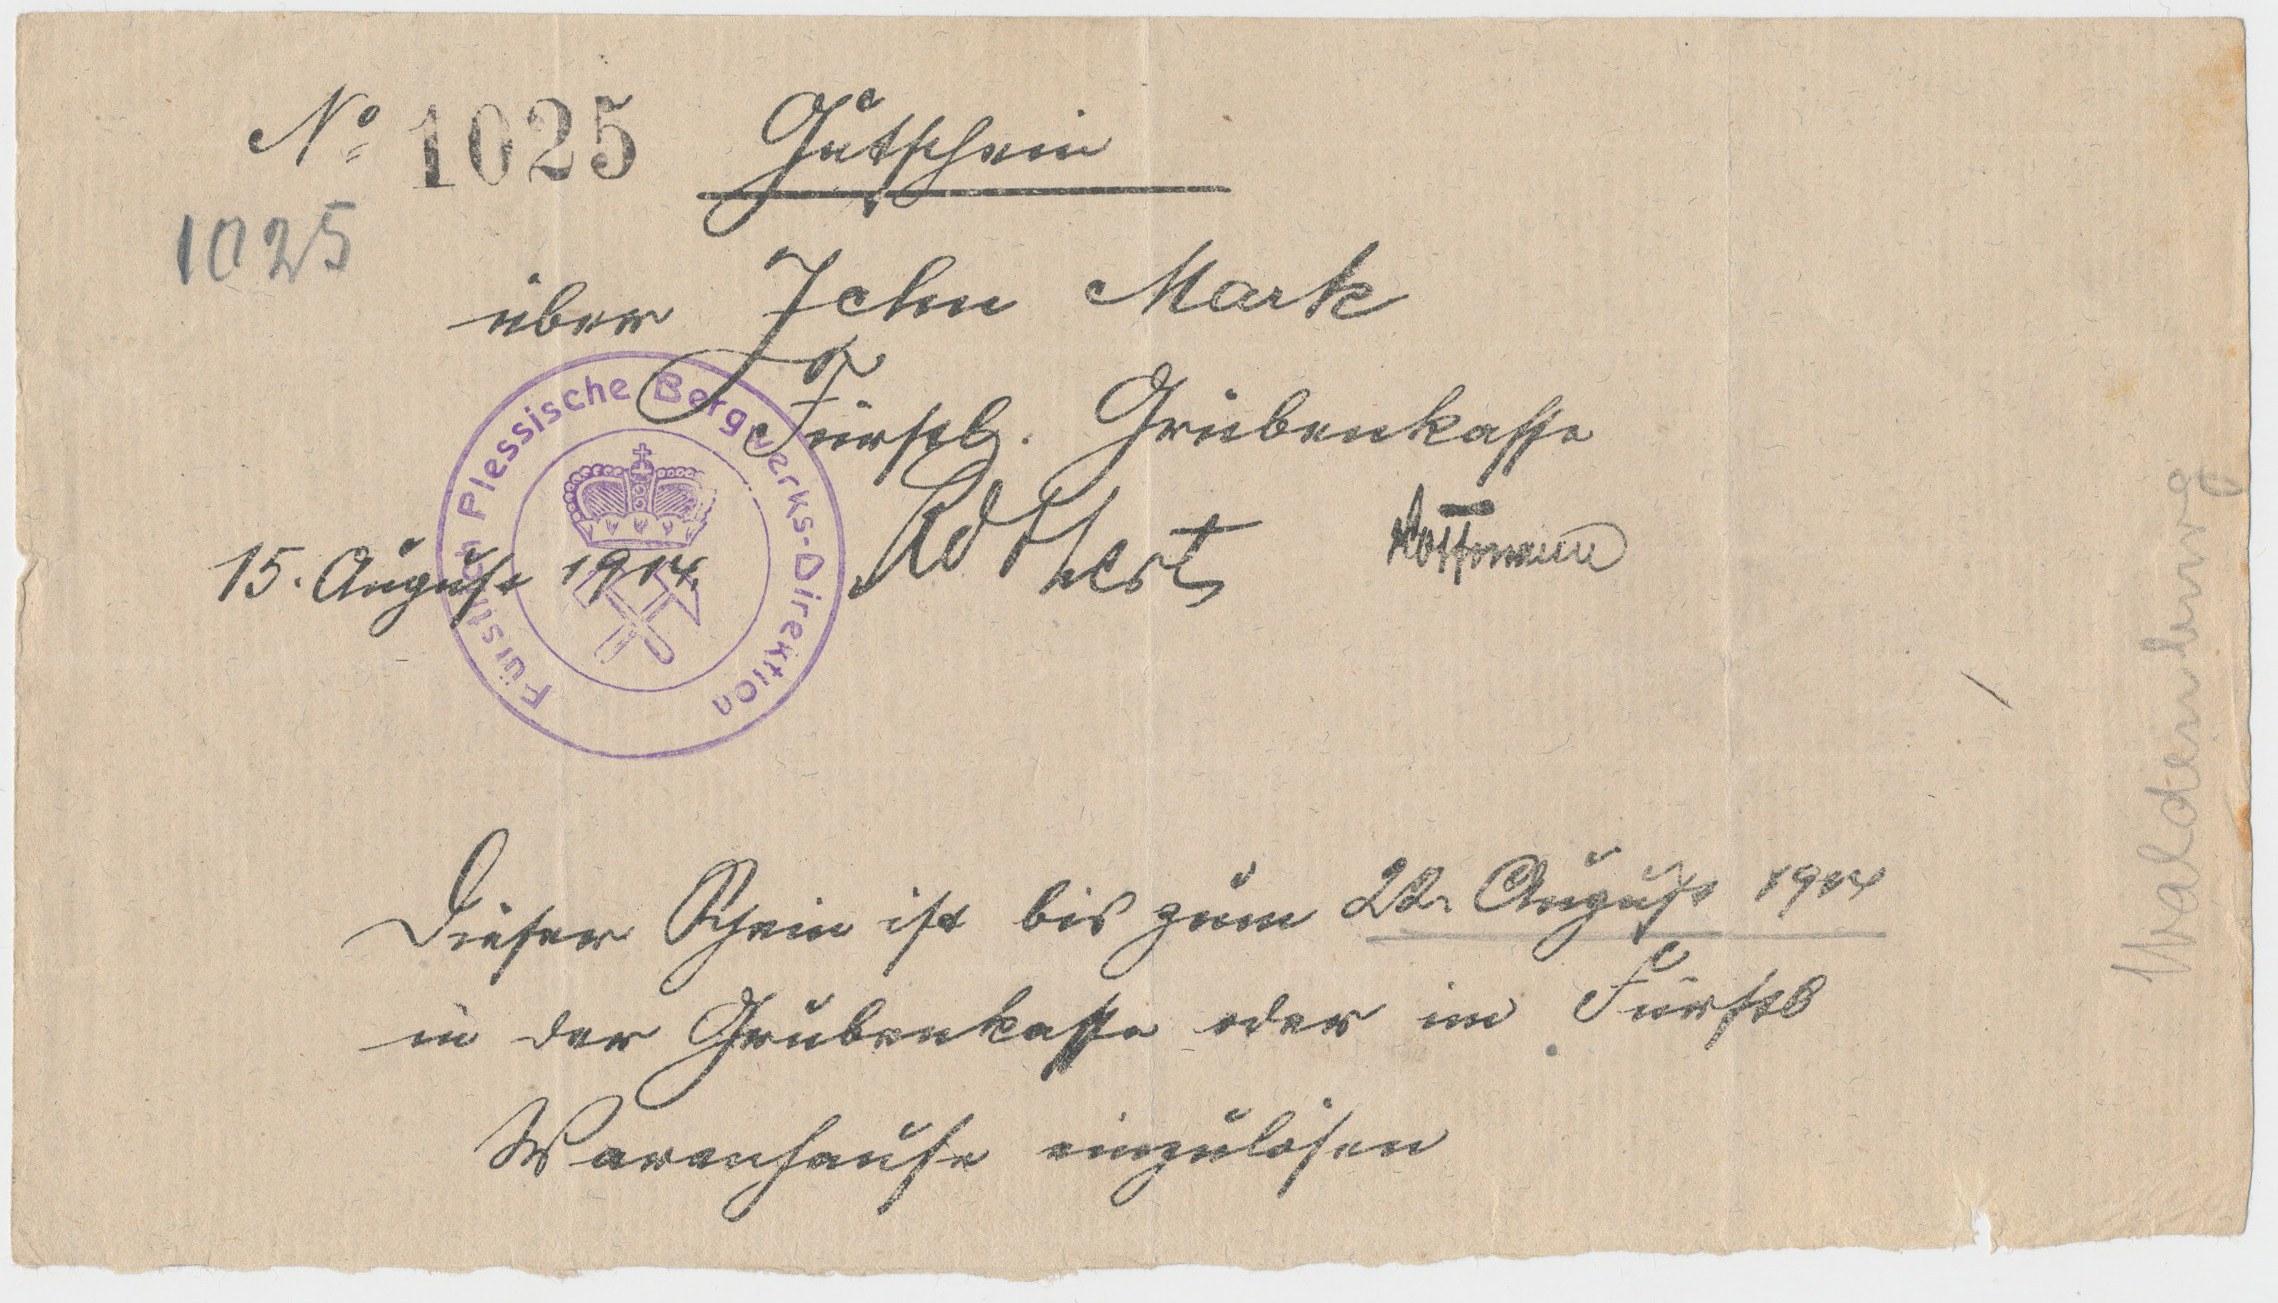 No 1025 Gutschein
1025
über Zehn Mark
Fürstl. Grubenkasse
Fürstlich Plessische Bergwerks-Direktion
15. August 1914.
Dieser Schein ist bis zum 22. August 1914
in der Grubenkasse oder im Fürstl
Warenhause einzulösen
Waldenburg